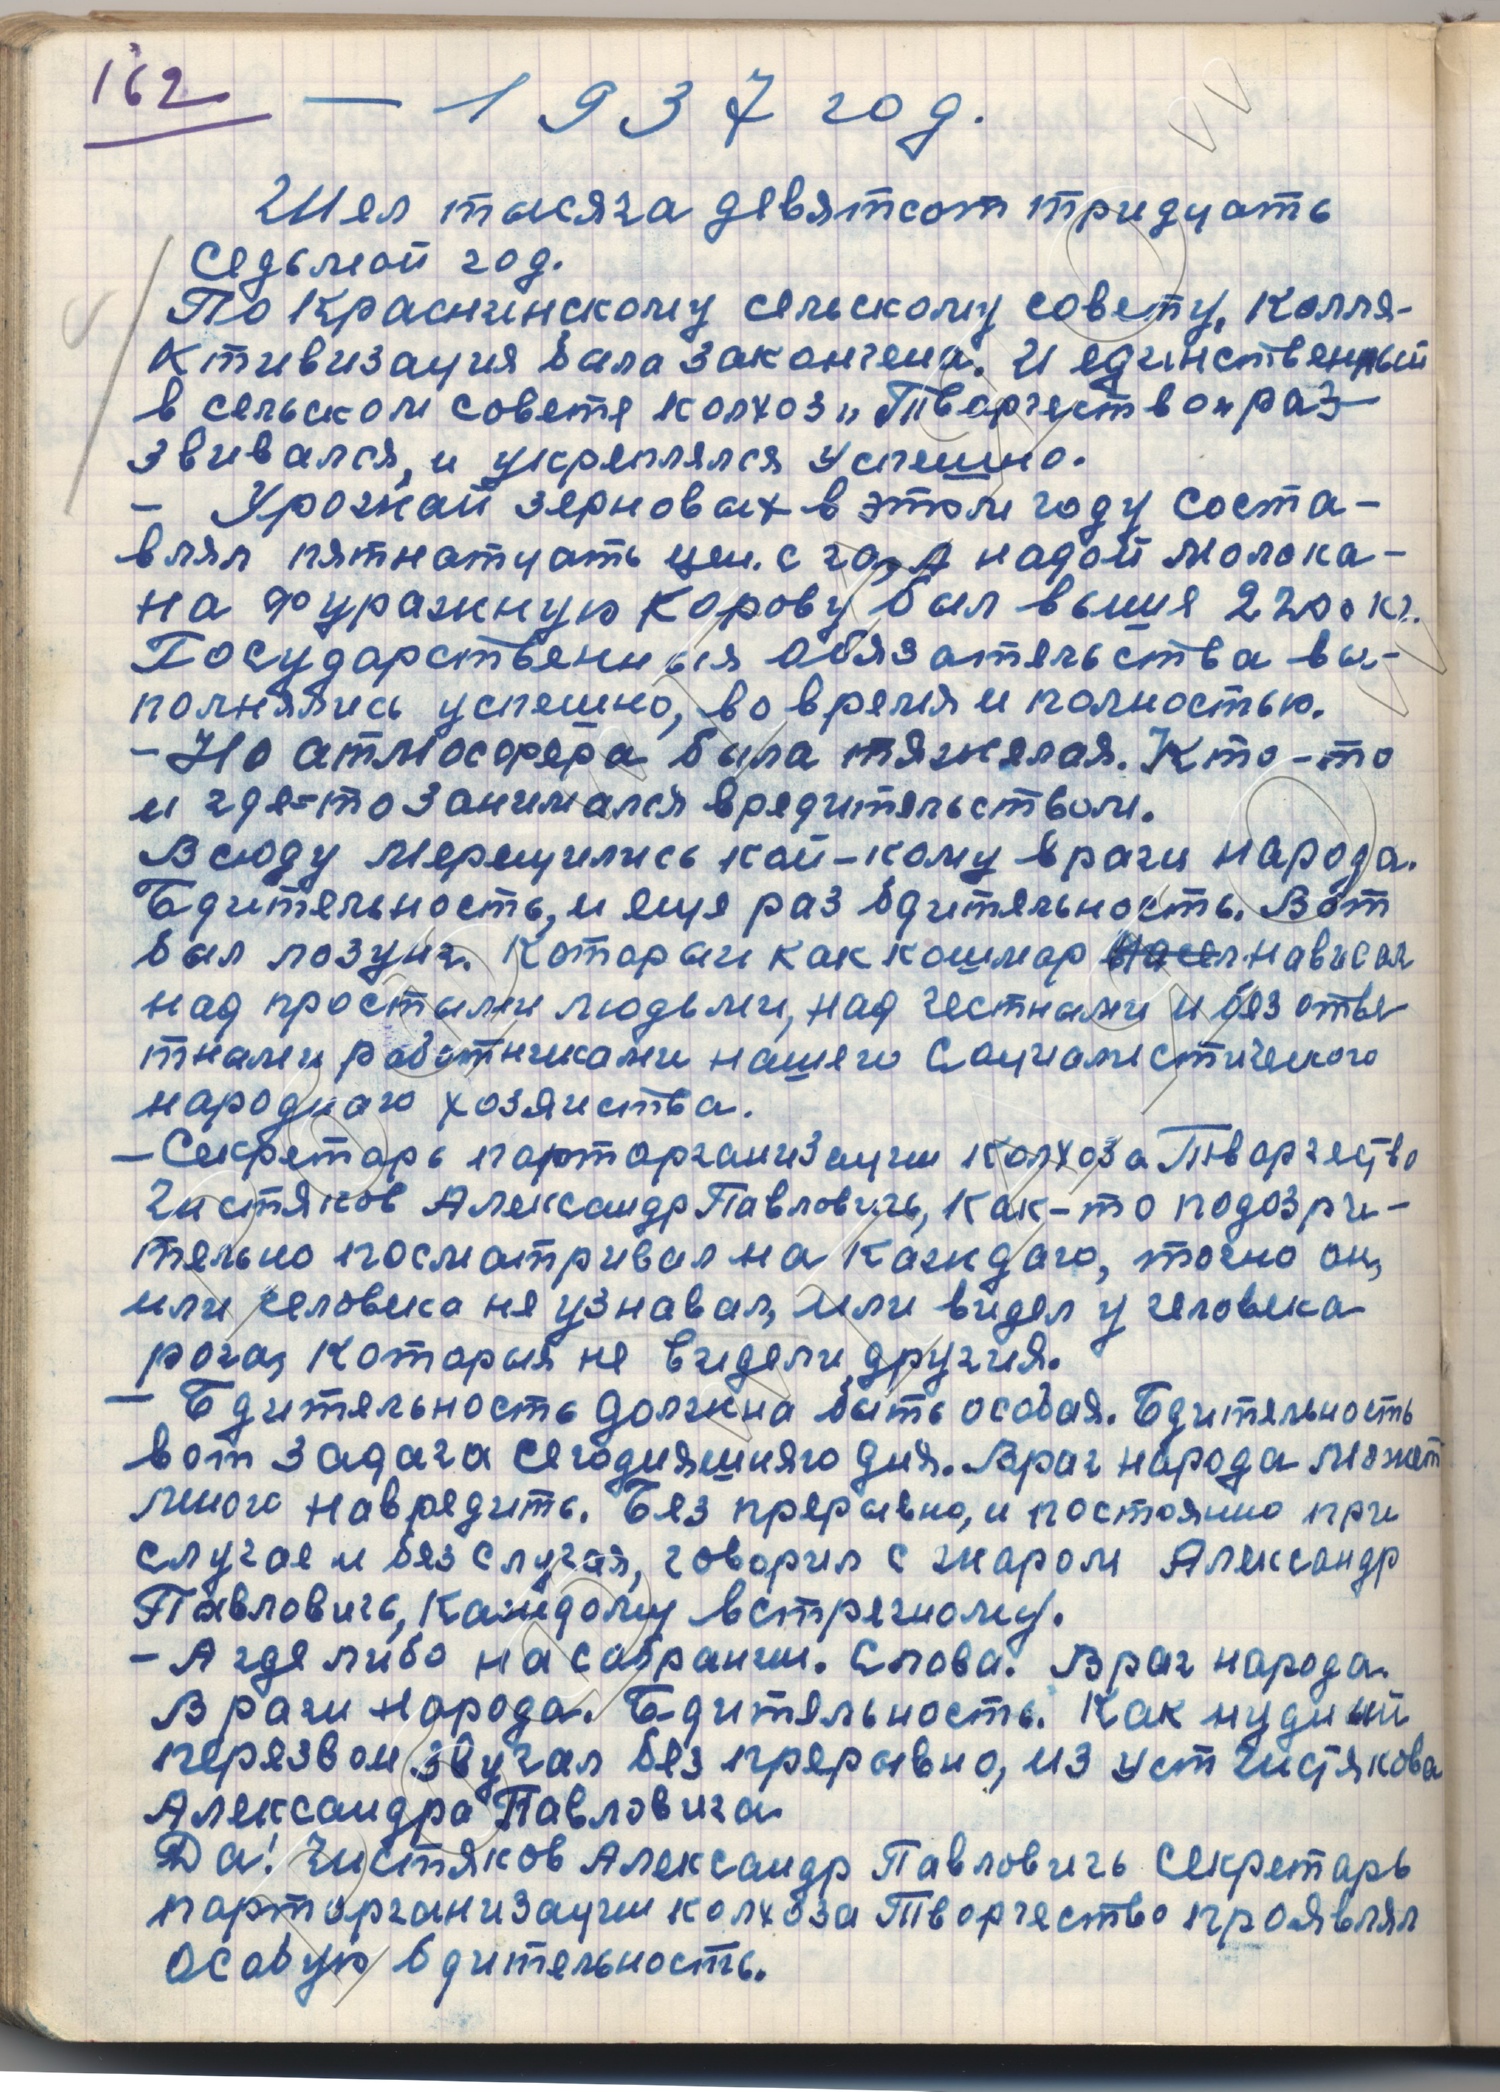 162
— 1937 год.
Шел тысяча девятсот тридцать
седьмой год.
По Краснинскому сельскому совету, Колля-
ктивизация была закончена. И единственный
в сельском совете колхоз „Творчество" раз-
звивался, и укреплялся успешно.
- Урожай зерновых в этом году соста-
влял пятнатцать цен. с га, А надой молока-
на фуражную корову был выше 2200 кг.
Государственныя обязательства вы-
полнялись успешно, во время и полностью.
- Но атмосфера была тяжелая. Кто-то
и где-то занимался вредительством.
Всюду мерещились кой-кому враги народа.
Бдительность, и еще раз бдительность. Вот
был лозунг. Который как кошмар нависал
над простыми людьми, над честными и без отве
тными работниками нашего Социалистического
народного хозяйства.
- Секретарь парторганизации колхоза Творчество
Чистяков Александр Павловичь, Как-то подозри-
тельно посматривал на каждаго, точно он,
или человека не узнавал, или видел у человека
рога, Которыя не видели другия.
- Бдительность должна быть особая. Бдительность
вот задача сегодняшняго дня. Враг народа может
много навредить. Без прерывно, и постоянно при
случае и без случая, говорил с жаром Александр
Павловичь, Каждому встречному.
- А где либо на собрании. Слова. Враг народа.
Враги народа. Бдительность. Как нудный
перезвон звучал без прерывно, из уст Чистякова
Александра Павловича
Да! Чистяков Александр Павловичь Секретарь
парторганизации колхоза Творчество проявлял
особую бдительность.